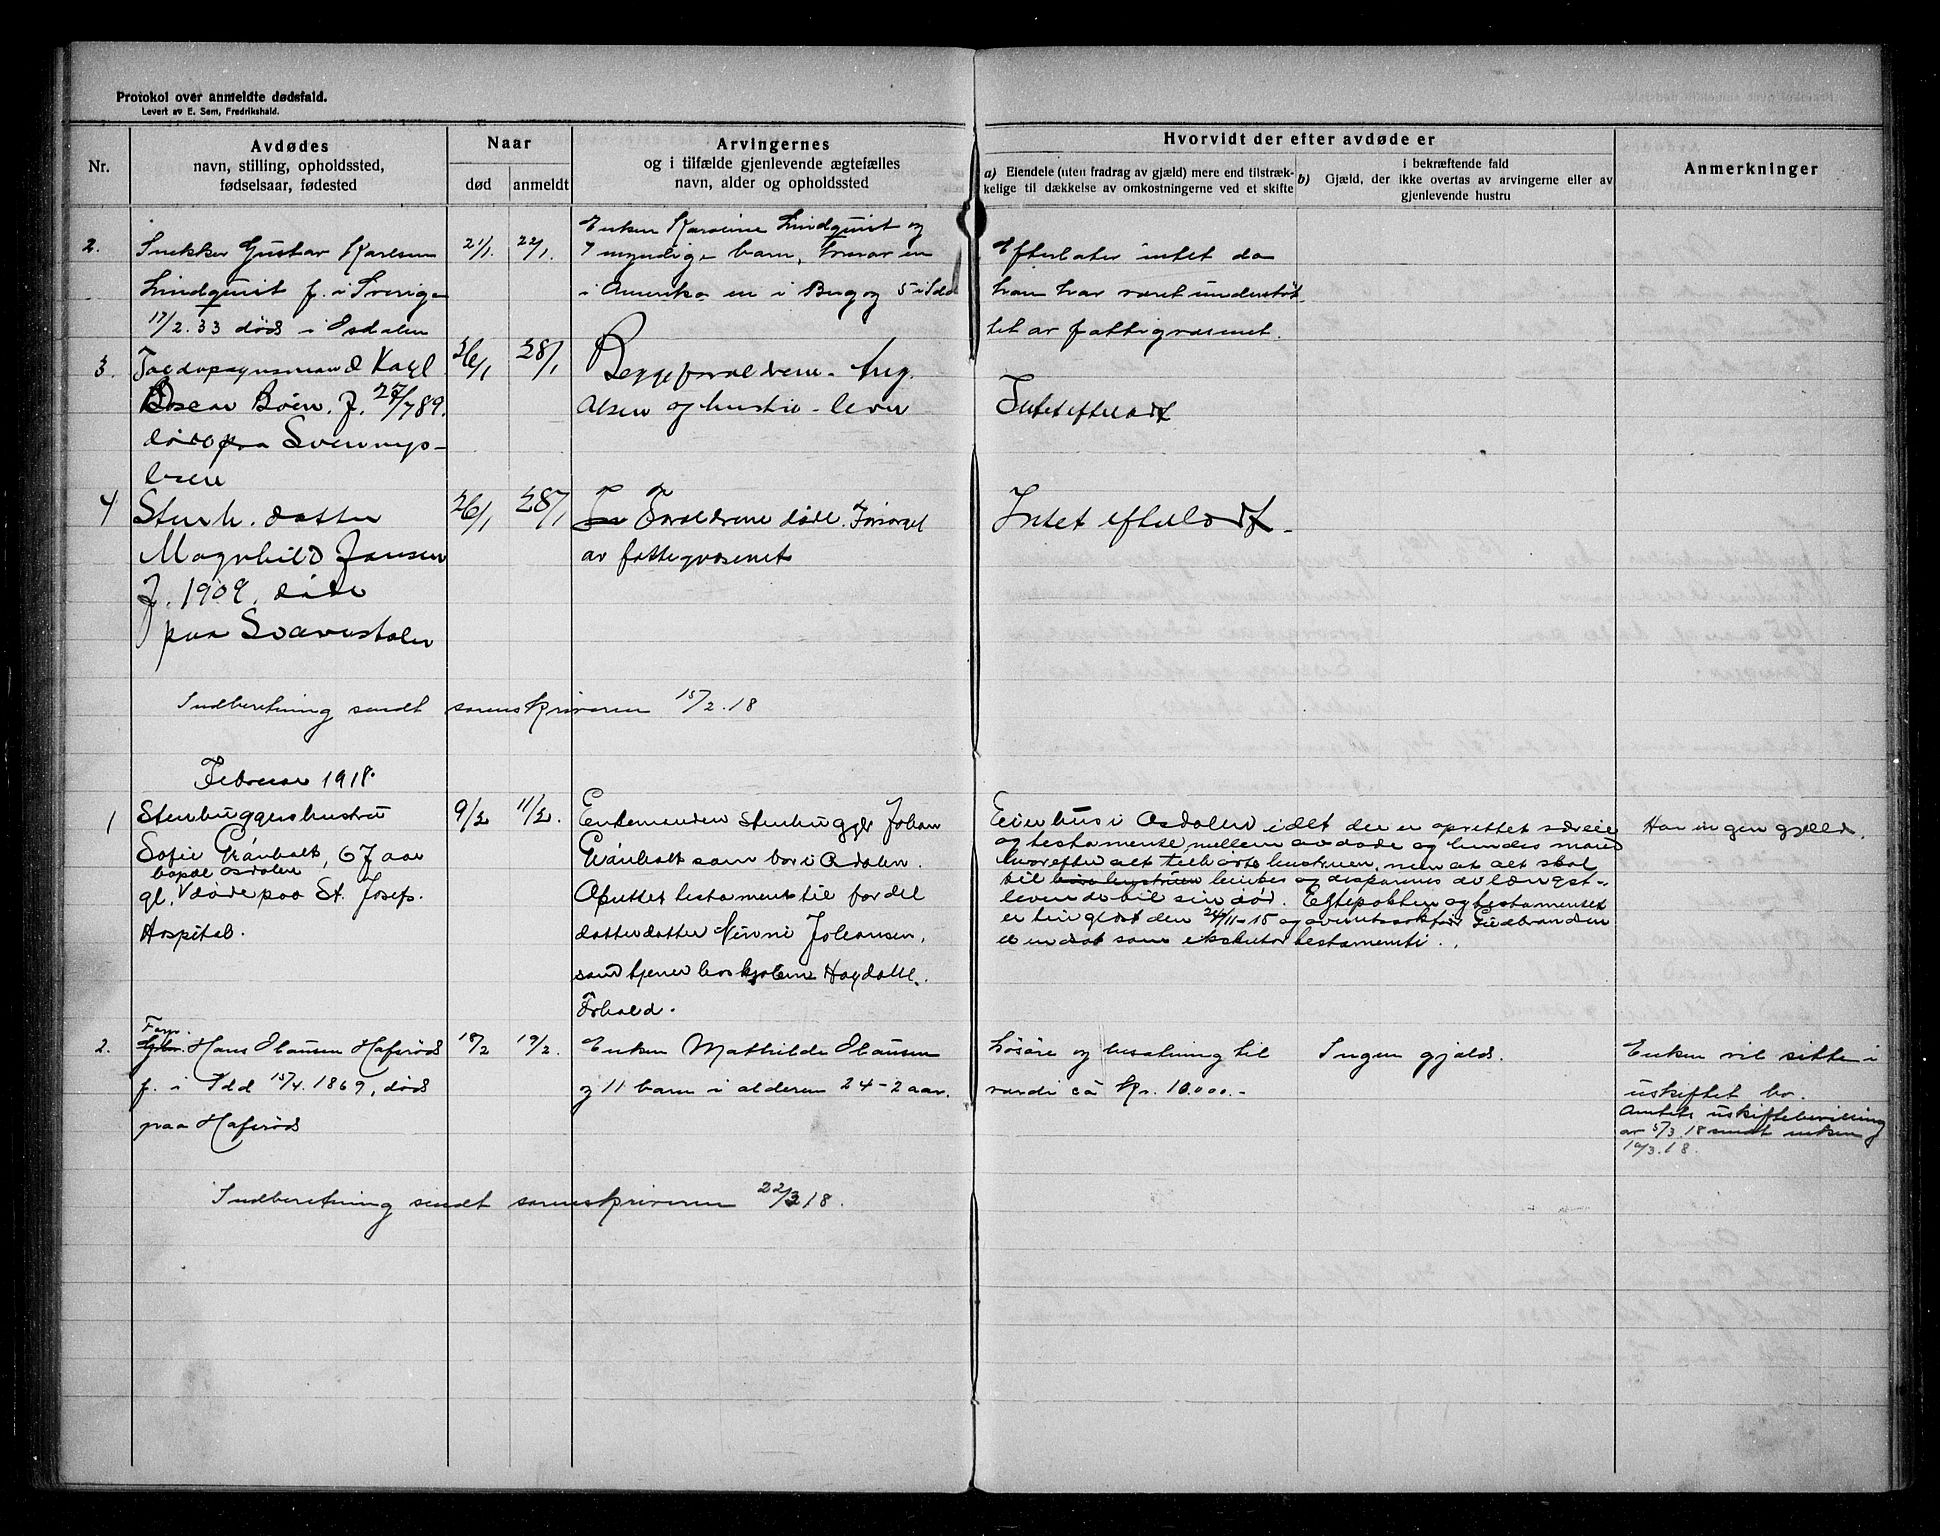 Protokol over anmeldte dødsfald.
Levert av E. Sem, Fredrikshald.
Nr.
Avdødes
navn, stilling, opholdssted,
fødselsaar, fødested
Naar
død
anmeldt
Arvingernes
og i tilfælde gjenlevende ægtefælles
navn, alder og opholdssted
Hvorvidt der efter avdøde er
a) Eiendele (uten fradrag av gjæld) mere end tilstræk-
kelige til dækkelse av omkostningerne ved et skifte
i bekræftende fald
b) Gjæld, der ikke overtas av arvingerne eller av
gjenlevende hustru
Anmerkninger
2.
Snekker Gustav Karlsen
Lindquist f. i Sverige
17/2.33 død i Osdalen
21/1.
22/1.
Enken Karoline Lindquist og
7 myndige barn, hvorav en
i Amerika en i Bug og 5 i Idd
Efterlater intet da
han har været understøt-
tet av fattigvæsenet.
3.
Karl
Oscar Boen. f. 27/7 89.
døde paa
26/1
28/1
Begge forældrene - Aug.
Olsen og hustru - lever
Intet efterladt
4
Stenh. datter
Magnhild Jansen
f. 1909. døde
paa
26/1
28/1
Forældrene døde. Forsørget
av fattigvæsenet
Intet efterladt -
Indberetning sendt sorenskriveren 15/2.18
Februar 1918.
1
Stenhuggershustru
Sofie Grånholt, 67 aar
bopæl Osdalen
gl. døde paa St. Josefs.
Hospital.
9/2
11/2.
Enkemanden Stenhugger Johan
Grånholt som bor i Osdalen.
Oprettet testament til fordel
datterdatter Ninni Johansen,
som tjener hos
F.hald.
Eier hus i Osdalen i det der er oprettet særeie
og testamente mellem avdøde og hendes mand
hvorefter alt tilhørte hustruen, men at alt skal
til hustruen og disponeres av længst-
levende til sin død. Egtepakten og testamentet
er tinglæst den 24/11-15 og overretssakfører Gudbrandsen
er indsat som eksekutor testamenti.
Har ingen gjæld.
2.
Farv.
Hans Olausen Hafsrød
f. i Idd 15/4.1869, død
paa Hafsrød
18/2
19/2.
Enken Mathilde Olausen
og 11 barn i alderen 24-2 aar.
Løsøre og besætning til
værdi ca Kr. 10.000.-
Ingen gjæld.
Enken vil sitte i
uskiftet bo.
Amtets uskiftebevilling
av 5/3.18 sendt enken
10/3.18.
Indberetning sendt sorenskriveren 22/3 18.